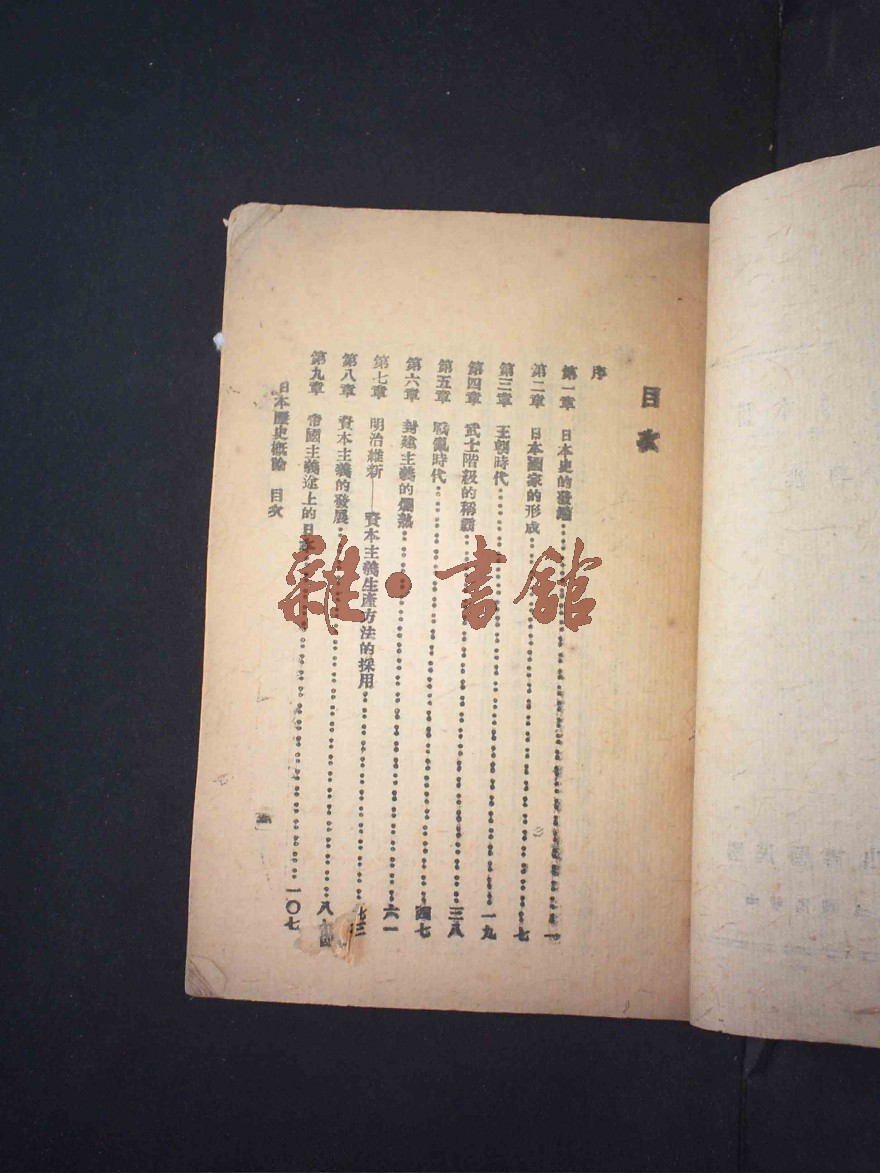 目次
序
第一章 日本史的發端……一
第二章 日本國家的形成……七
第三章 王朝時代……一九
第四章 武士階級的稱霸……三八
第五章 戰亂時代……四七
第六章 封建主義的爛熟……六一
第七章 明治維新——資本主義生產方法的採用……七三
第八章 資本主義的發展……八
第九章 帝國主義途上的日本……一〇七
日本歷史概論 目次
雜·書館